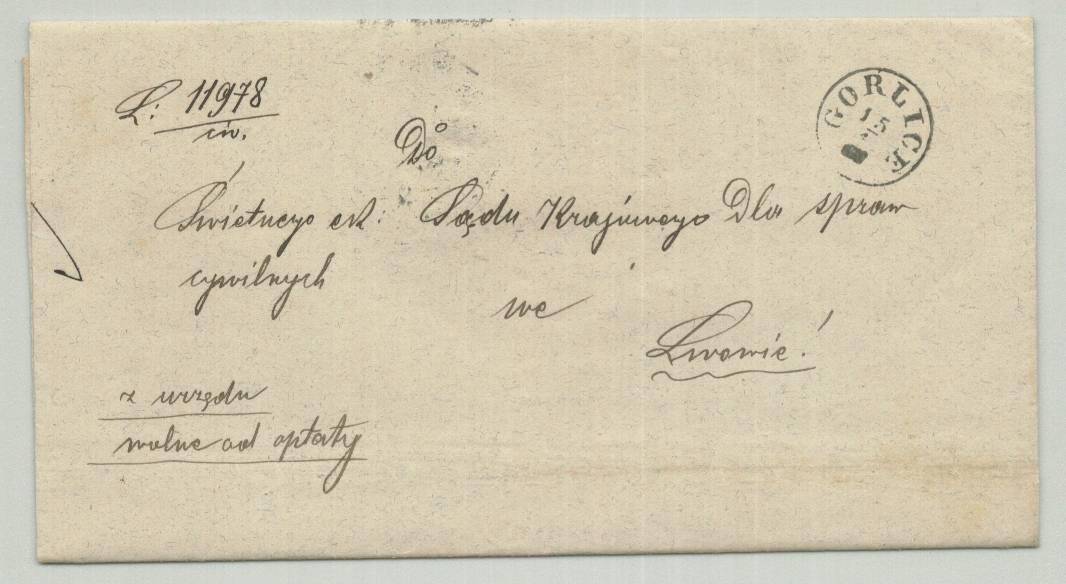 L: 11978
civ.
GORLICE
15
Do
Świetnego ck: Sądu Krajowego Dla spraw
cywilnych
we
Lwowie!
z urzędu
wolne od opłaty